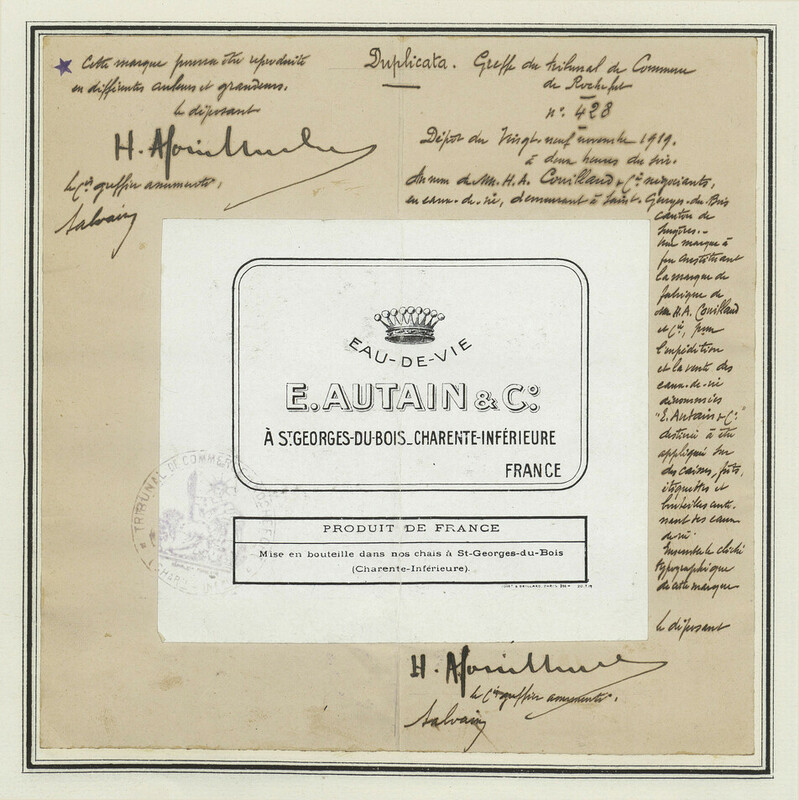 Cette marque pourra être reproduite
en différentes couleurs et grandeurs.
le déposant
le Cis greffier assermenté,
Salvain
Duplicata. Greffe du tribunal de Commerce
de Rochefort
n°. 428
Dépôt du Vingt-neuf novembre 1919.
à deux heures du soir.
Au nom de MM. H.A. Couillaud & Cie négociants,
en eaux-de-vie, demeurant à Saint-Georges-du-Bois
canton de
Surgères.-
Une marque à
feu constituant
la marque de
fabrique de
MM. H.A. Couillaud
et Cie, pour
l'expédition
et la vente des
eaux-de-vie
dénommées
"E. Autain & Co."
destinée à être
appliquée sur
des caisses, fûts,
étiquettes et
bouteilles conte-
nant des eaux
de vie
Ensemble le cliché
typographique
de cette marque
le déposant
EAU-DE-VIE
E. AUTAIN & Co.
À ST.GEORGES-DU-BOIS_CHARENTE-INFÉRIEURE
FRANCE
PRODUIT DE FRANCE
Mise en bouteille dans nos chais à St-Georges-du-Bois
(Charente-Inférieure).
TRIBUNAL DE COMMERCE DE
le Cis greffier assermenté.
Salvain